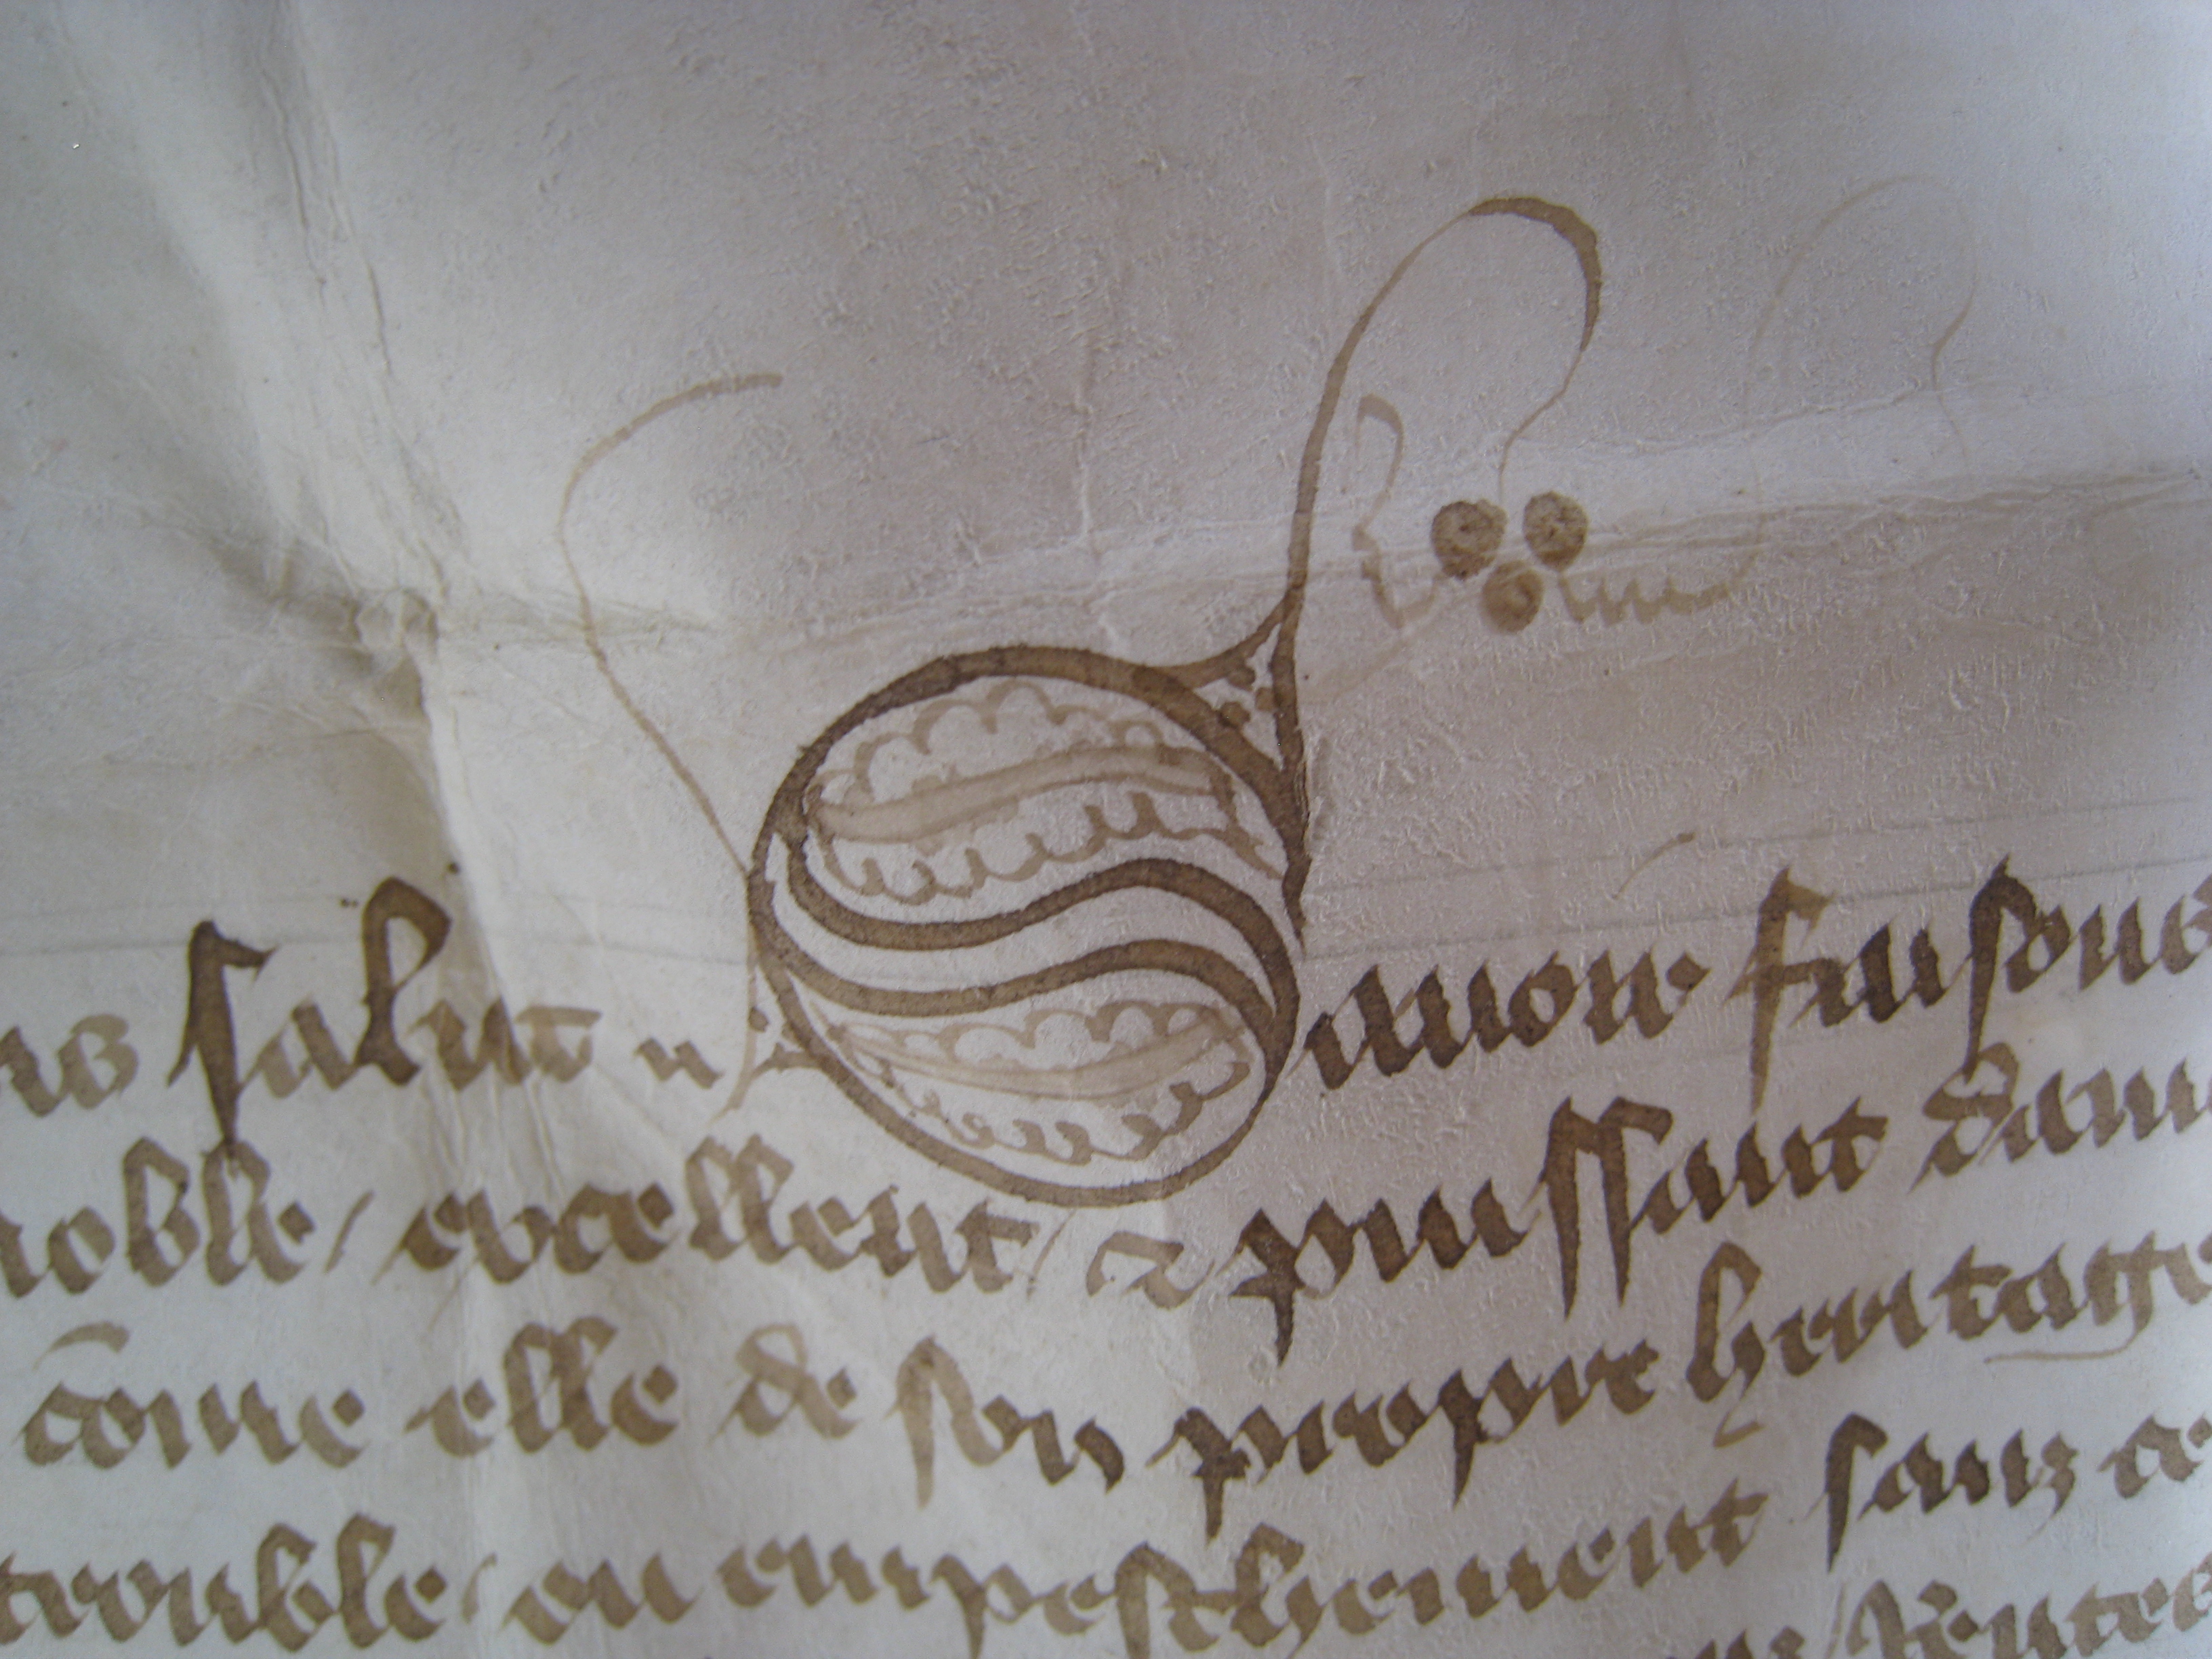 salut Sauoir faisons
noble / excellent / ⁊ puissant dam
co̅me elle de son propre heritage
trouble / ou empeschement sanz
Rentes